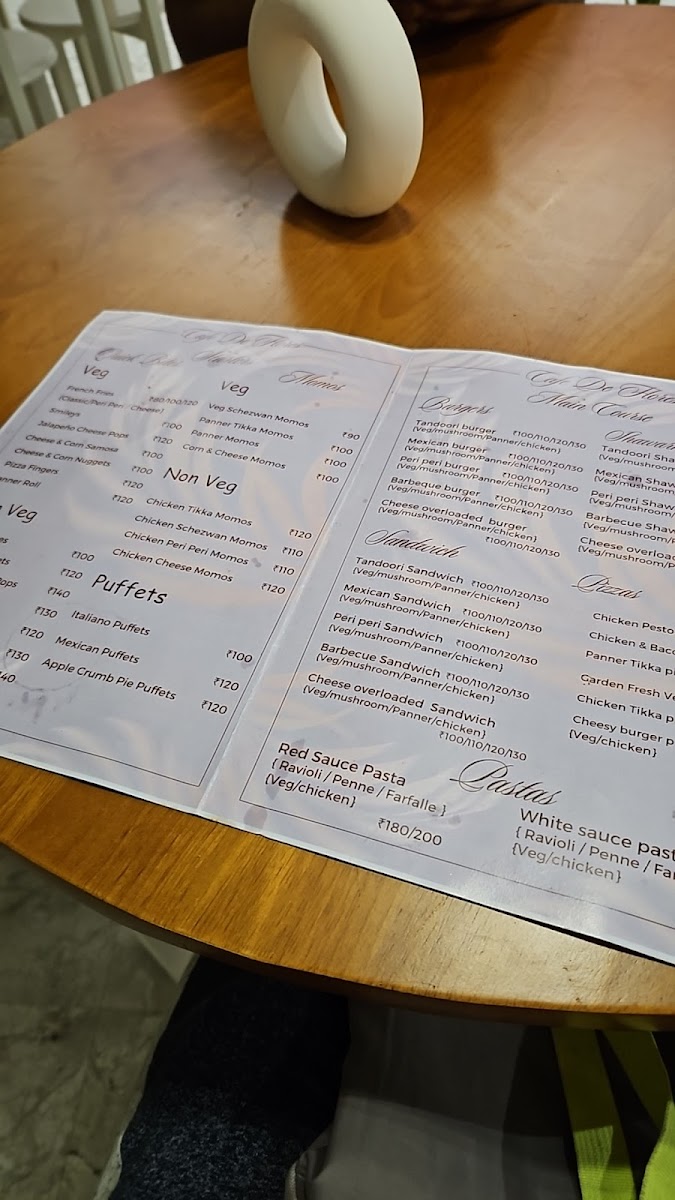 Cafe De Flores
Quick Bites
Veg
French Fries
(Classic/Peri Peri Cheese) ₹80/100/120
Smileys ₹100
Jalapeño Cheese Pops ₹120
Cheese & Corn Samosa ₹100
Cheese & Corn Nuggets ₹100
Pizza Fingers ₹120
nner Roll ₹120
Veg
₹100
₹120
Pops ₹140
₹130
₹120
₹130
Momos
Veg
Veg Schezwan Momos ₹90
Panner Tikka Momos ₹100
Panner Momos ₹100
Corn & Cheese Momos ₹100
Non Veg
Chicken Tikka Momos ₹120
Chicken Schezwan Momos ₹110
Chicken Peri Peri Momos ₹110
Chicken Cheese Momos ₹120
Puffets
Italiano Puffets ₹100
Mexican Puffets ₹120
Apple Crumb Pie Puffets ₹120
Cafe De Flores
Main Course
Burgers
Tandoori burger ₹100/110/120/130
(Veg/mushroom/Panner/chicken}
Mexican burger ₹100/110/120/130
(Veg/mushroom/Panner/chicken}
Peri peri burger ₹100/110/120/130
(Veg/mushroom/Panner/chicken}
Barbeque burger ₹100/110/120/130
(Veg/mushroom/Panner/chicken}
Cheese overloaded burger
(Veg/mushroom/Panner/chicken}
₹100/110/120/130
Sandwich
Tandoori Sandwich ₹100/110/120/130
(Veg/mushroom/Panner/chicken}
Mexican Sandwich ₹100/110/120/130
(Veg/mushroom/Panner/chicken}
Peri peri Sandwich ₹100/110/120/130
(Veg/mushroom/Panner/chicken}
Barbecue Sandwich ₹100/110/120/130
(Veg/mushroom/Panner/chicken}
Cheese overloaded Sandwich
(Veg/mushroom/Panner/chicken}
₹100/110/120/130
Shawar
Tandoori Sha
(Veg/mushroom
Mexican Shaw
(Veg/mushroom
Peri peri Shaw
(Veg/mushroom/
Barbecue Shaw
(Veg/mushroom/P
Cheese overloa
(Veg/mushroom/P
Pizzas
Chicken Pesto
Chicken & Baco
Panner Tikka pi
Garden Fresh Ve
Chicken Tikka p
Cheesy burger p
{Veg/chicken}
Pastas
Red Sauce Pasta
{ Ravioli / Penne / Farfalle }
{Veg/chicken}
₹180/200
White sauce past
{ Ravioli / Penne / Far
{Veg/chicken}